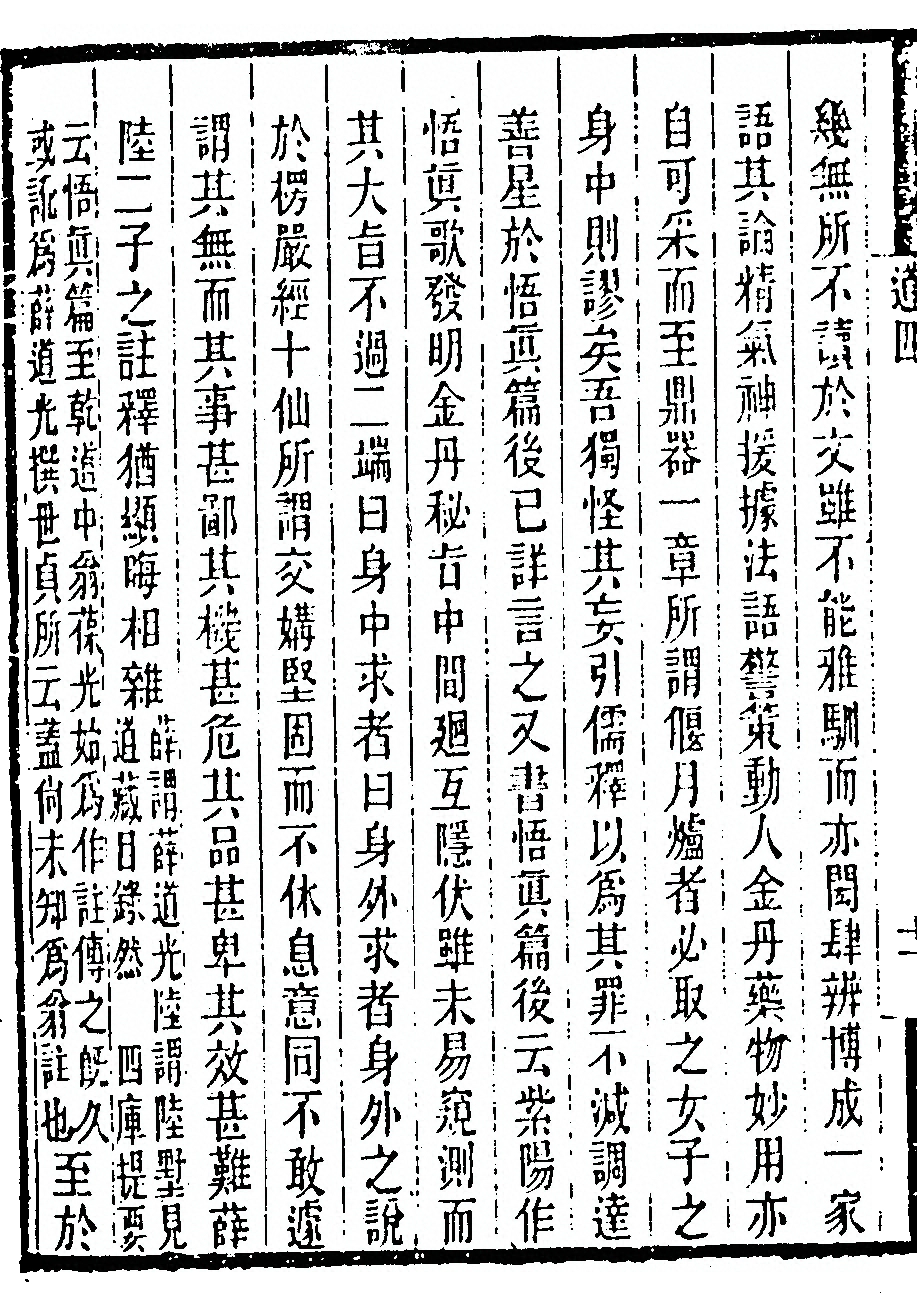 道四
十
幾無所不讀於文雖不能雅馴而亦閎肆辨博成一家
語其論精氣神援據法語警策動人金丹藥物妙用亦
自可采而至鼎器一章所謂偃月爐者必取之女子之
身中則謬矣吾獨怪其妄引儒釋以爲其罪不減調達
善星於悟眞篇後已詳言之又書悟眞篇後云紫陽作
悟眞歌發明金丹秘旨中間廻互隱伏雖未易窺測而
其大旨不過二端曰身中求者曰身外求者身外之說
於楞嚴經十仙所謂交媾堅固而不休息意同不敢遽
謂其無而其事甚鄙其機甚危其品甚卑其效甚難薛
陸二子之註釋猶顯晦相雜
薛謂薛道光陸謂陸墅見
道藏目錄然 四庫提要
云悟眞篇至乾道中翁葆光始爲作註傳之旣久
或訛爲薛道光撰世貞所云蓋尙未知爲翁註也
至於